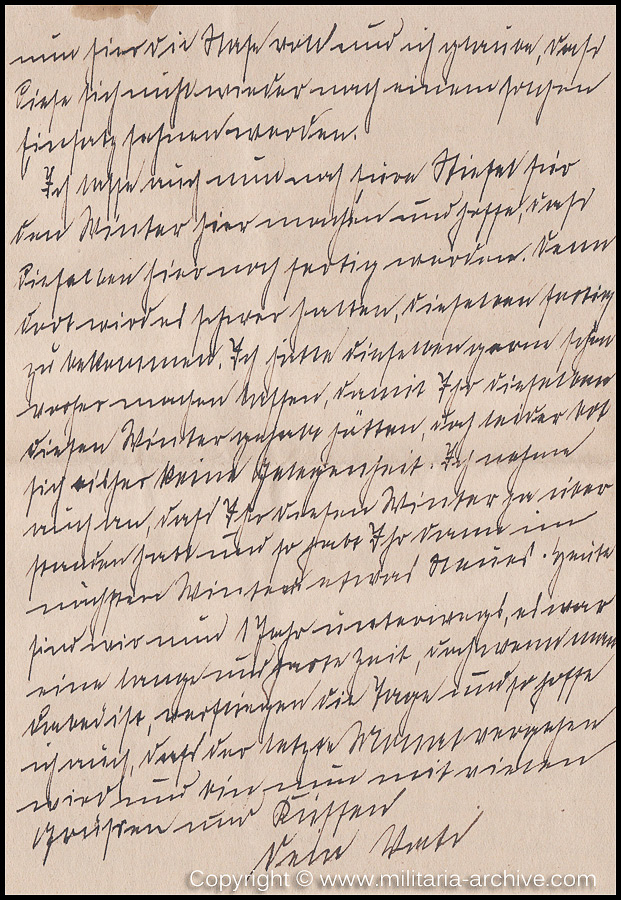 nun hier die Nase voll und ich glaube, dass
diese sich nicht wieder nach einem solchen
Einsatz sehnen werden.
Ich lasse auch nun noch Stiefel für
den Winter hier machen und hoffe, dass
dieselben hier noch fertig werden. Denn
dort wird es schwer halten, dieselben fertig
zu bekommen. Ich hätte dieselben gerne schon
vorher machen lassen, damit Ihr dieselben
diesen Winter gehabt hätten, doch leider bot
sich bisher keine Gelegenheit. Ich nehme
auch an, dass Ihr diesen Winter ja über
standen habt und so habt Ihr dann im
nächsten Winter etwas Neues. Heute
sind wir nun 1 Jahr unterwegs, es war
eine lange und harte Zeit, doch wenn man
dabei ist, verfliegen die Tage und so hoffe
ich auch, dass der letzte Monat vergehen
wird und bin nun mit vielen
Grüssen und Küssen
Dein Vati
Copyright © www.militaria-archive.com